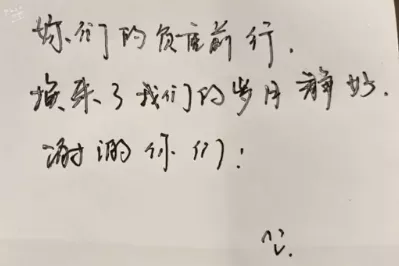 你们的负重前行，
换来了我们的岁月静好，
谢谢你们！